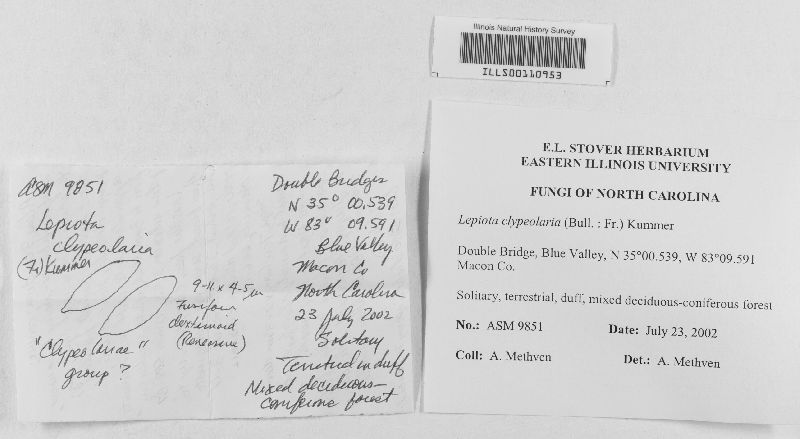 Illinois Natural History Survey
ILLS00110953
ASM 9851
Lepiota
clypeolaria
(Fr) Kummer
9-11 x 4-5 µm
Fusiform
dextrinoid
"Clypeolariae"
group?
Double Bridges
N 35° 00.539
W 83° 09.591
Blue Valley
Macon Co
North Carolina
23 July 2002
Solitary
Terrestrial in duff
Mixed deciduous-
coniferous forest
E.L. STOVER HERBARIUM
EASTERN ILLINOIS UNIVERSITY
FUNGI OF NORTH CAROLINA
Lepiota clypeolaria (Bull. : Fr.) Kummer
Double Bridge, Blue Valley, N 35°00.539, W 83°09.591
Macon Co.
Solitary, terrestrial, duff, mixed deciduous-coniferous forest
No.: ASM 9851 Date: July 23, 2002
Coll: A. Methven Det.: A. Methven